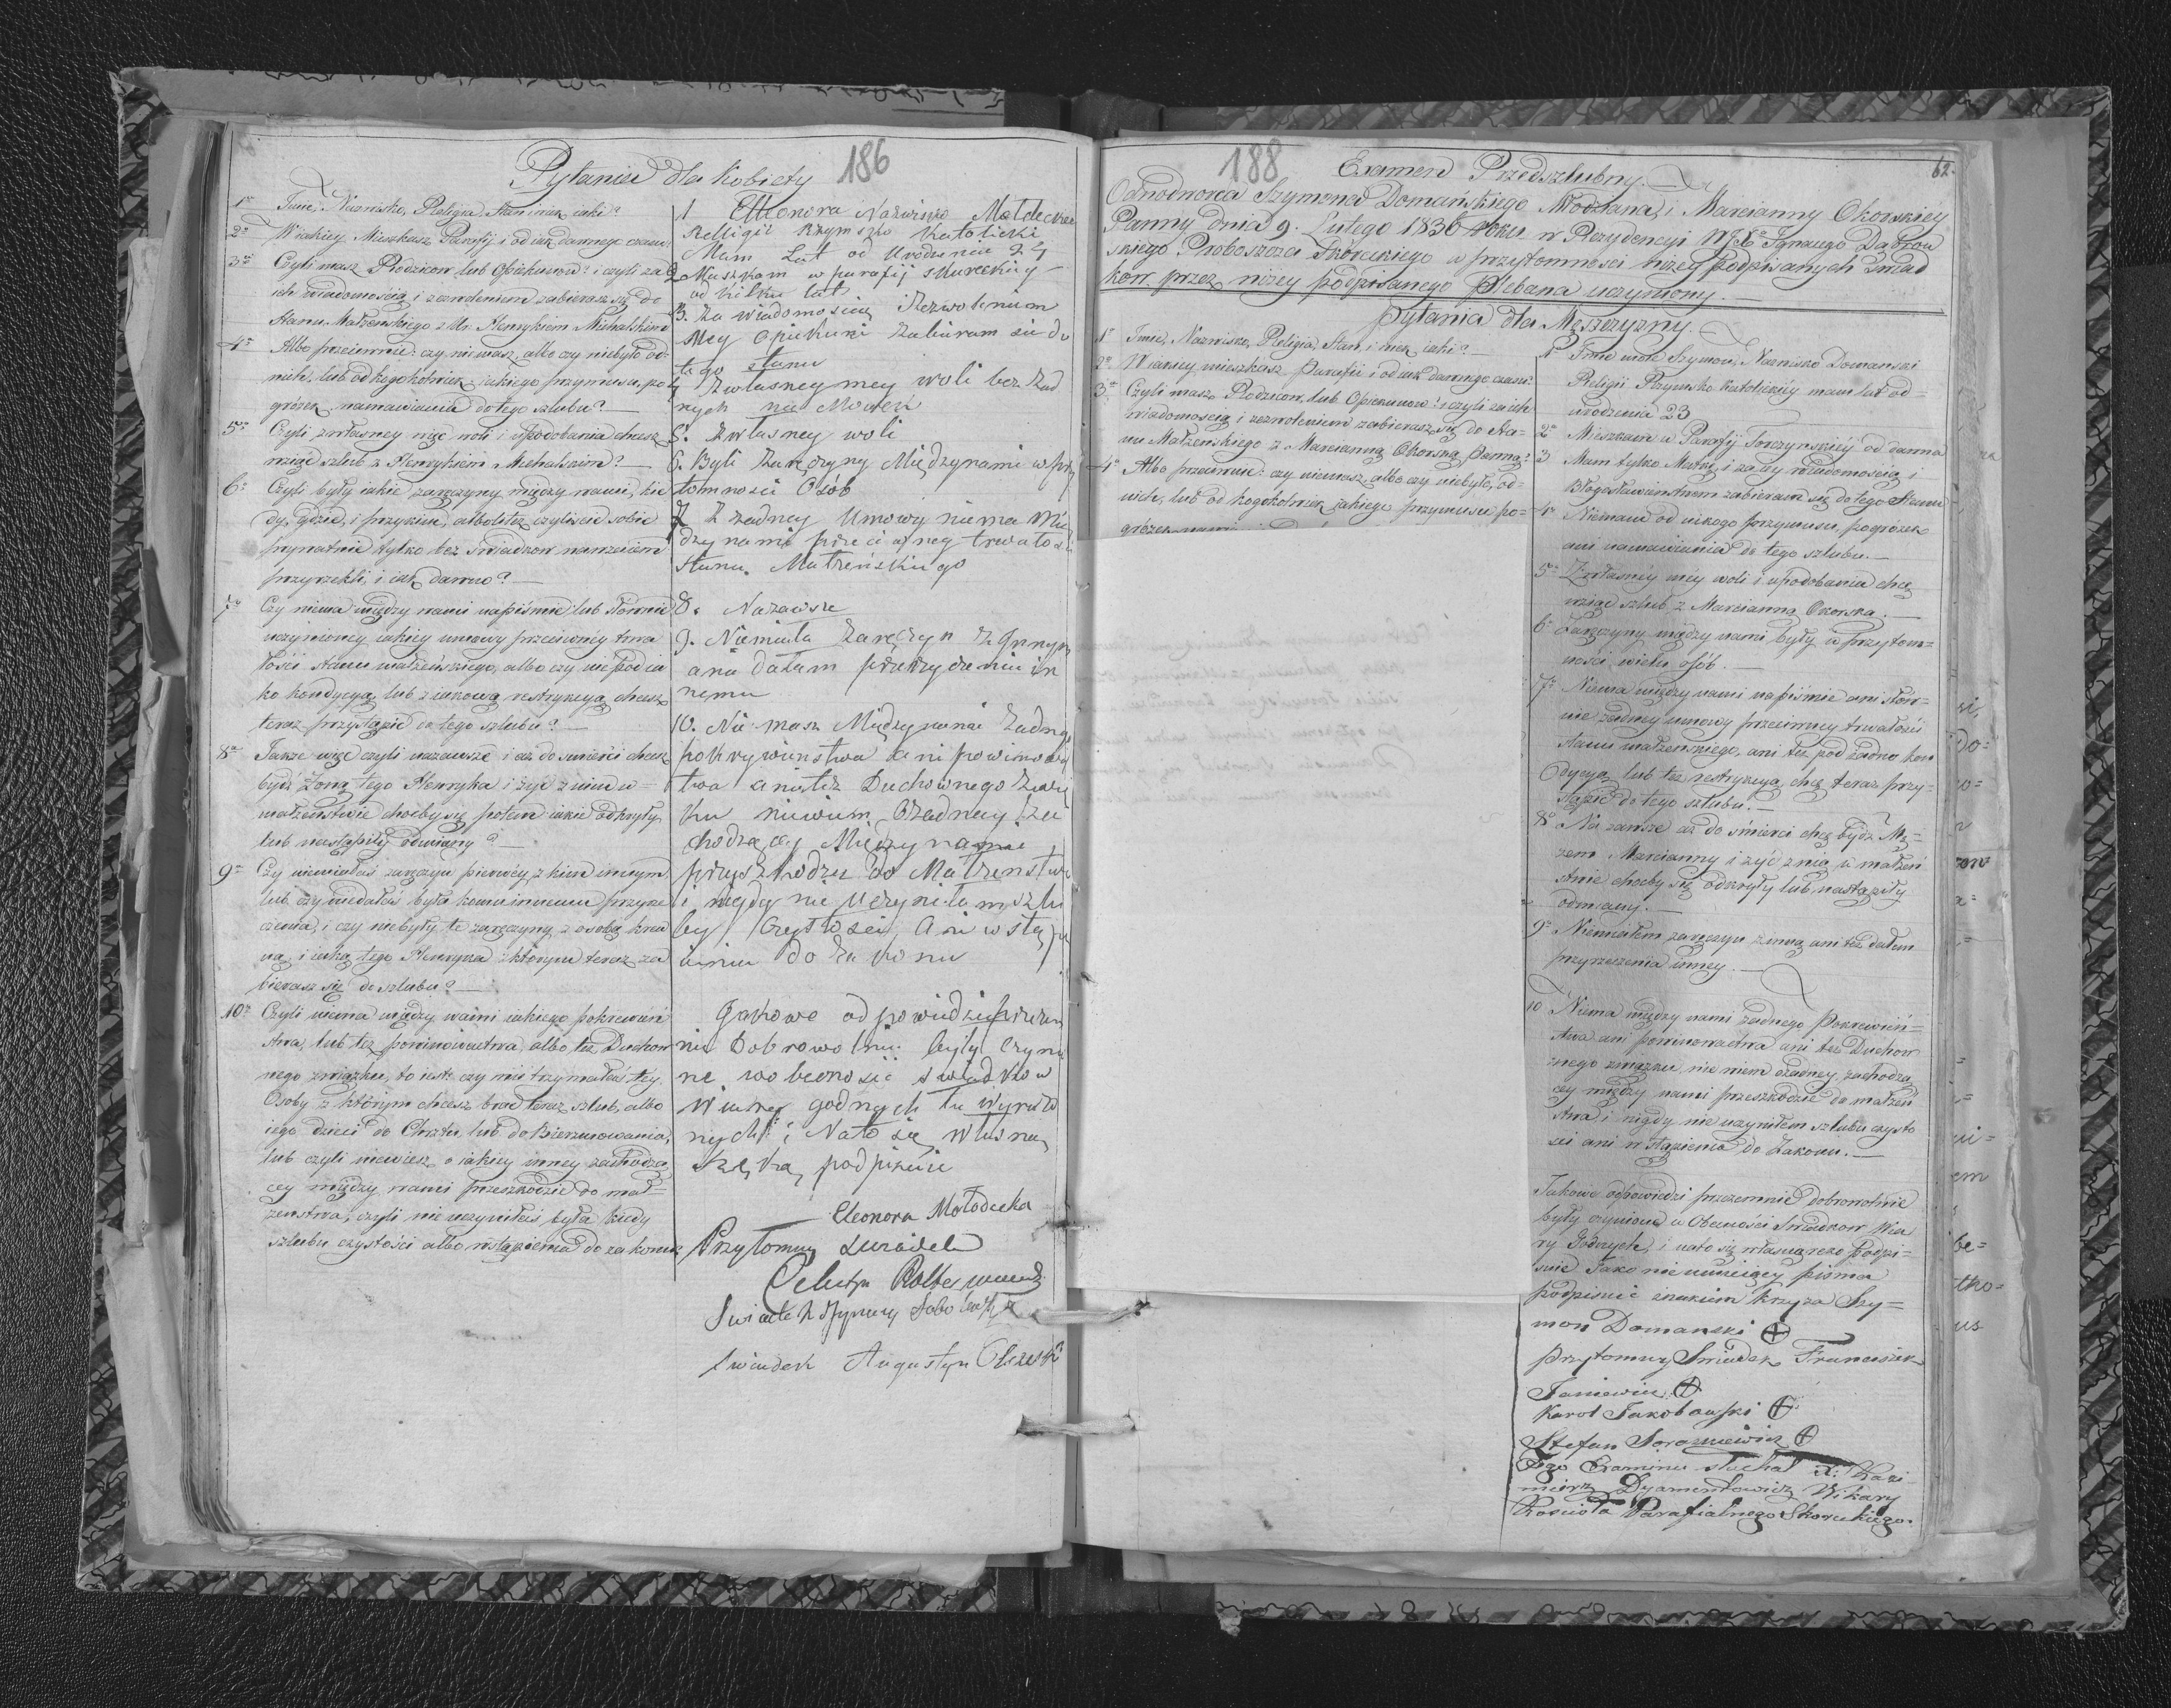 186
Pytania dla Kobiety
1o Imie, Nazwisko, Religia Stan i wiek iaki?
2o W iakiey Mieszkasz Parafij i od iak dawnego czasu
3o Czyli masz Rodzicow lub Opiekunow? i czyli za
ich wiadomością i zezwoleniem zabierasz się do
Stanu Małżenskiego z Ur. Henrykiem Michalskim
4o Albo przeciwnie: czy niemasz, albo czy niebyło od
nich, lub od kogokolwiek iakiego przymusu, po
gróżek, namawiania do tego szlubu?
5o Czyli z własney więc woli i upodobania chcesz
wziąć szlub z Henrykiem Michalskim?
6o Czyli były iakie zaręczyny między wami, kie
dy, gdzie, i przykim, albo też czyliście sobie
prywatnie tylko bez swiadkow nawzaiem
przyrzekli, i iak dawno?
7o Czy niema między wami napiśmie lub słownie
uczynioney iakiey umowy przeciwney trwa
łości stanu małżeńskiego, albo czy nie pod ia
ko kondycyą, lub z iakową restrykcyą chcesz
teraz przystąpić do tego szlubu?
8o Także więc czyli nazawsze i aż do smierci chcesz
bydź Żoną tego Henryka i żyć z nim w
małżeństwie choćby się potem iakie odkryły
lub nastąpiły odmiany?
9o Czy niemiałaś zaręczyn pierwey z kim innym
lub czy niedałaś była komu innemu przyrze
czenia, i czy niebyły te zaręczyny z osobą krew
ną iaką tego Henryka z którym teraz za
bierasz się do szlubu?
10o Czyli niema między wami iakiego pokrewień
stwa, lub też powinowactwa, albo też Duchow
nego związku, to iest: czy nie trzymałaś tey
Osoby z którym chcesz brać teraz szlub, albo
iego dzieci do Chrztu, lub do Bierzmowania,
lub czyli niewiesz o iakiey inney zachodzą
cey między wami przeszkodzie do mał=
żenstwa; czyli nie uczyniłaś była kiedy
szlubu czystości albo wstąpienia do zakonu
1 Elleonora Nazwisko Mołodecka
Relligii Rzymsko Katolicki
Mam Lat od Urodzenia 24
2 Mieszkam w parafij skureckiey
od kilku lat
3. Za wiadomoscią i Zezwolenim
Mey opiekuni zabieram sie do
tego stanu
4 Zwłasney mey woli bez żad
nych na Mowień
5. Zwłasney woli
6. Byli Zaręczyny Międzynami w przy
tomnosci Osób
7 Zżadney Umowy niema Mię
dzynami przeciwney trwałosci
Stanu Małżeńskiego
8. Nazawsze
9. Niemiała zaręczyn z Innym
ani dałam przerzyczenia in
nemu
10. Nie masz Międzynami żadnego
pokrywinstwa ani powinowac
twa aniteż Duchownego zwią
zku niewiem Ożadney za
chodzącey Międzynami
przyszkodzie do Małżenstwa
i nigdy nie Uczyniłam szlu
by Czystosci Ani wstą pi
iniu do zakonu
Jakowe odpowiedzi przezem
nie Dobrowolnie były Czynio
ne wobecnosić swiadków
Wiarey godnych tu wyrażo
nych i Nato się własną
Ręką podpisuie
Eleonora Mołodecka
Przytomny Swiadek
Celestyn
Swiadek Ignacy Sobolewski
Swiadek Augustyn Olszeski
188
62.
Examen Przedszlubny.
Odmodworca Szymona Domańskiego Młodziana, i Marcianny Okorskiey
Panny dnia 9. Lutego 1836 Roku w Rezydencyi WJXo Ignacego Dąbrow
skiego Proboszcza Skoreckiego w przytomnosci niżey podpisanych Swiad
ków przez niżey podpisanego Plebana uczyniony.
Pytania dla Męszczyzny.
1o Imie, Nazwisko, Religia, Stan, i wiek iaki?
2o W iakiey mieszkasz Parafii i od iak dawnego czasu?
3o Czyli masz Rodzicow, lub Opiekunow? i czyli za ich
wiadomoscią i zezwoleniem zabierasz się do Sta=
nu Małżenskiego z Marcianną Okorską Panną?
4o Albo przeciwnie: czy niemasz, albo czy niebyło, od=
nich, lub od kogokolwiek jakiego przymusu po=
1o Imie moie Szymon, Nazwisko Domanski
Religii Rzymsko Katolickiey mam lat od=
urodzenia 23
2o Mieszkam w Parafij Torczynskiey od dawna
3 Mam tylko Matkę, i za iey wiadomoscią i
Błogosławinstwem zabieram się do tego Stanu
4o Niemam od nikogo przymusu, pogrozek
ani namawiania do tego szlubu.
5o Z własney mey woli i upodobania chcę
wziąć szlub z Marcianną Okorską.
6o Zaręczyny między nami były w przytom=
nosci wielu osób.
7o Niema między nami napiśmie ani słow=
nie żadney umowy przeciwney trwałości
stanu małżenskiego, ani też pod żadną kon
dycyą lub też restrykcyą chcę teraz przy=
stąpić do tego szlubu.
8o Na zawsze aż do śmierci chcę bydź Mę=
żem Marcianny i żyć z nią w małżeń
stwie choćby się odkryły lub nastąpiły
odmiany.
9o Niemiałem zaręczyn z inną ani też dałem
przyrzeczenia inney.
10 Niema między nami żadnego Pokrewień=
stwa ani powinowactwa ani też Duchow
nego związku, nie wiem ożadney zachodzą
cey między nami przeszkodzie do małżeń
stwa i nigdy nie uczyniłem szlubu czysto
sci ani wstąpienia do Zakonu.
Jakowe odpowiedzi przezemnie dobrowolnie
były czynione w Obecności Swiadkow Wia
ry Godnych, i nato się własnąręką podpi=
suie Jako nie umieiący pisma
podpisuie znakiem krzyża Szy=
mon Domanski +
przytomny Swiadek Franciszek
Janiewicz +
Karol Jakobowski +
Stefan +
Tego Examinu słuchał X: Kazi
mierz Dyamentowicz Wikary
Koscioła Parafialnego Skoreckiego.